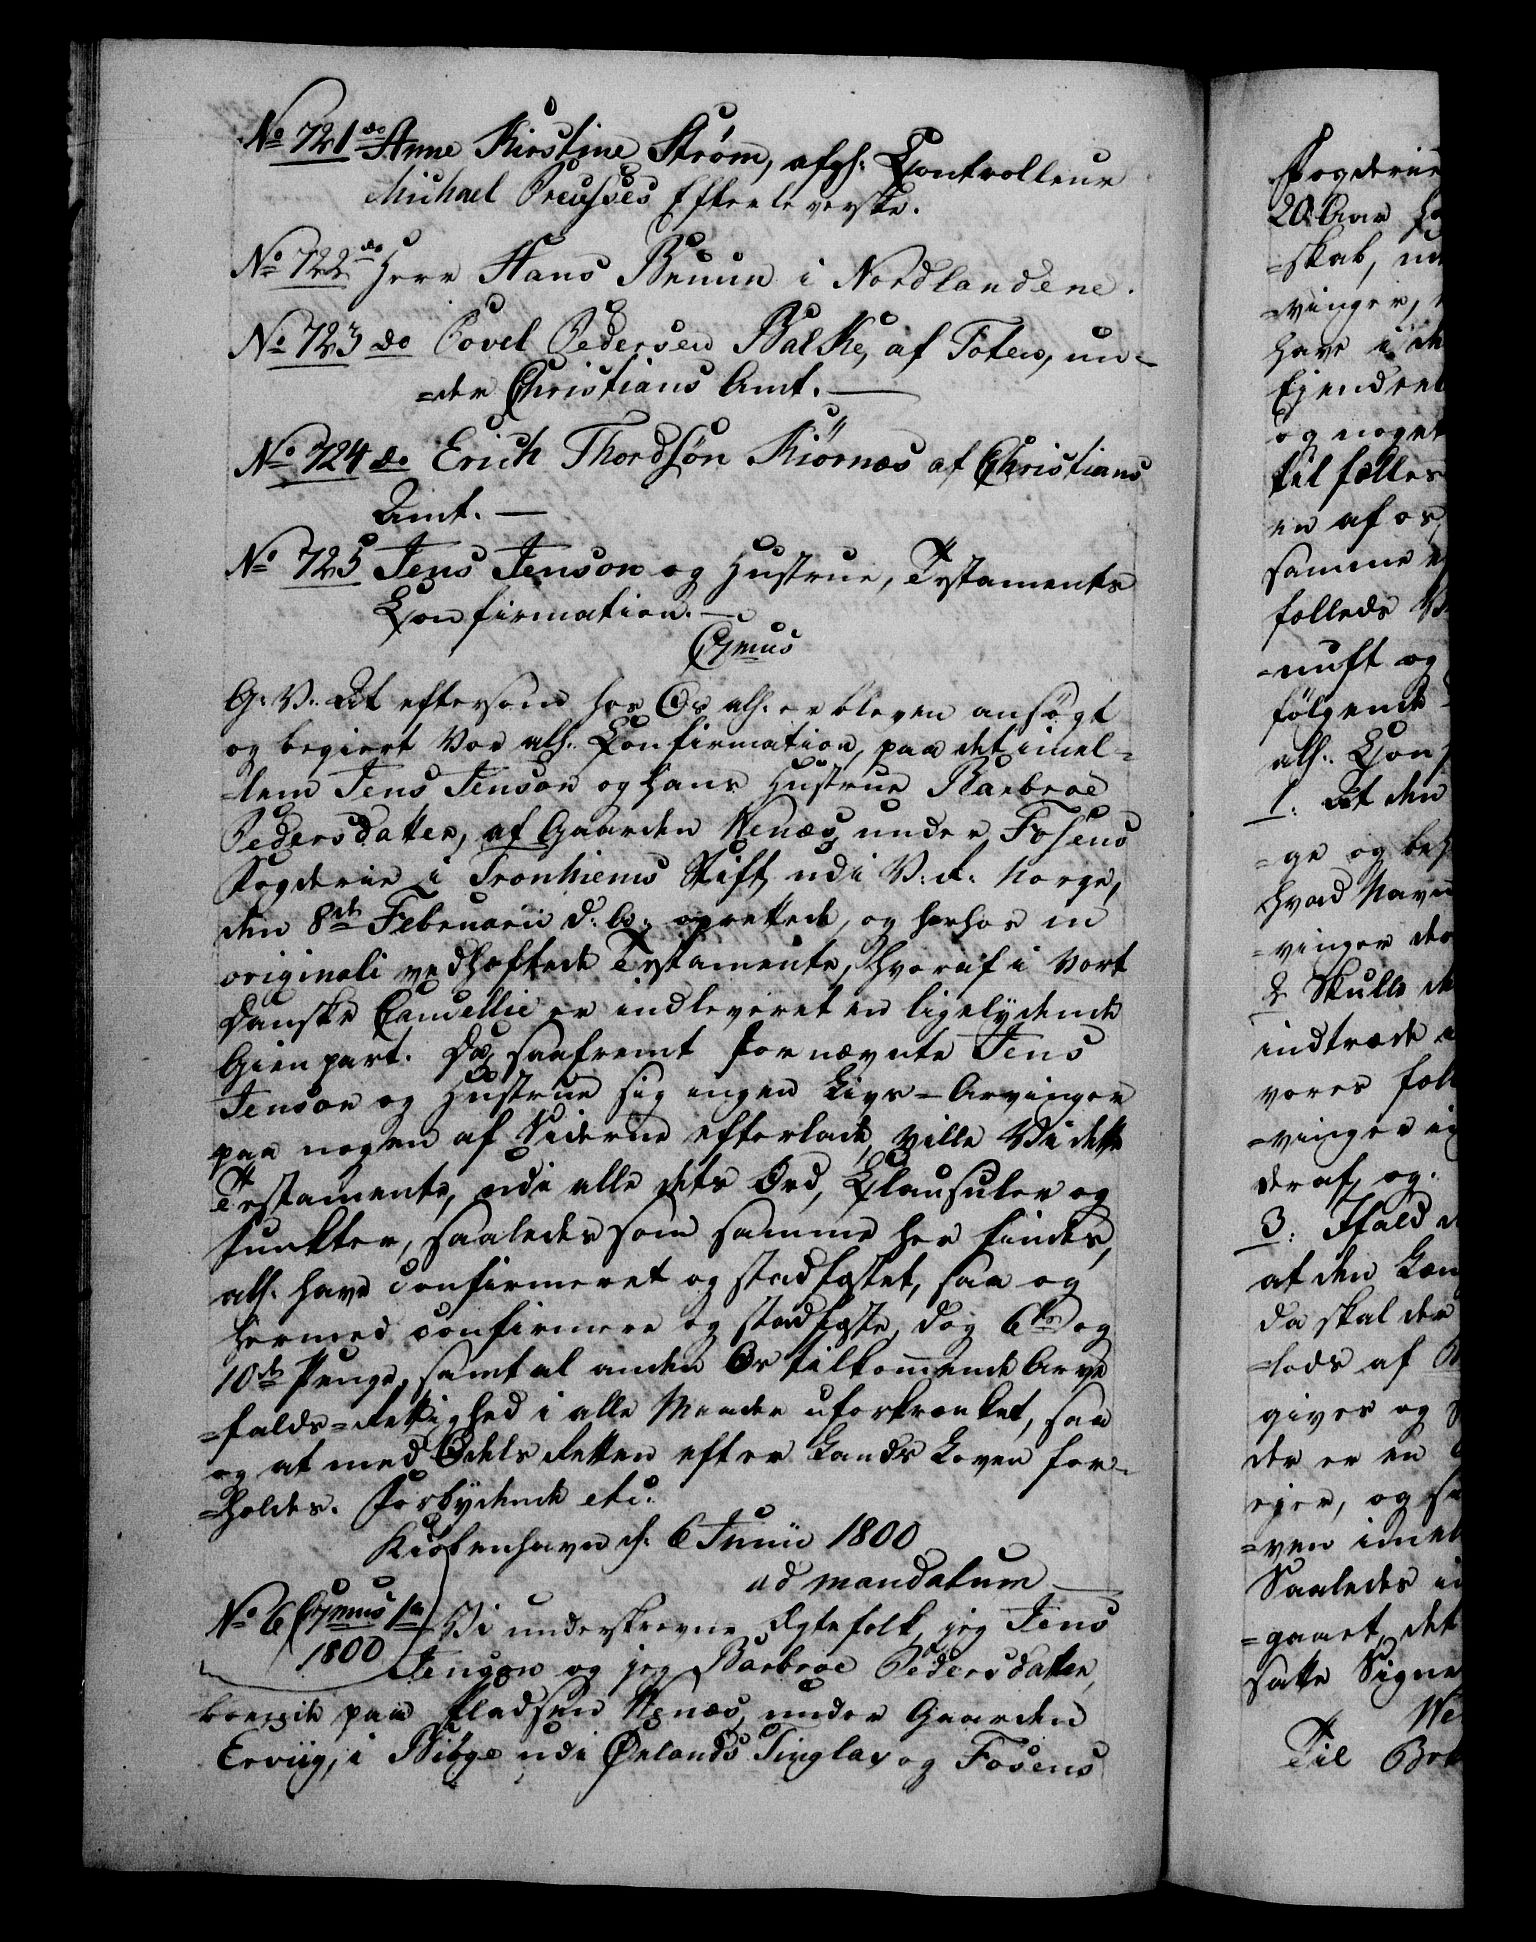 No 721 do Anne Kirstine Strøm, afg: Controlleur
Michael Preusses Efterleverske.
No 722 do Herr Hans Bruun i Nordlandene.
No 723 do Povel Pedersen Balke, af Toten, un-
-der Christians Amt.
No 724 do Erich Thordsøn Kiörnæs af Christians
Amt.
No 725 Jens Jenson og Hustrue, Testaments
Confirmation.
G: V: At eftersom hos Os all: er bleven ansøgt
og begiert Vor all: Confirmation, paa det imel-
-lem Jens Jenson og hans Hustrue Barbroe
Pedersdatter, af Gaarden Nenæs, under Fosens
Fogderie i Tronhiems Stift udi V: R: Norge,
den 8de Februarii d: A: oprettede, og herhos in
originali vedheftede Testamente, hvoraf i Vort
danske Cancellie er indleveret en ligelydende
Gienpart. Da, saafremt fornævnte Jens
Jenson og Hustrue sig ingen Livs-Arvinger
paa nogen af Siderne efterlade, ville Vi dette
Testamente, udi alle dets Ord, Clausuler og
Puncter, saaledes som samme her findes,
all: have confirmeret og stadfæstet, saa og
hermed confirmere og stadfæste, dog 6te og
10de Penge, samt al anden Os tilkommende Arve
-falds-Rettighed i alle Maader uforkrænket, saa
og at med Odels Retten efter Lands Loven for-
-holdes. Forbydende etc:
Kiøbenhavn d: 6 Junii 1800
ad mandatum
No 6 1800 Vi underskrevne Ægtefolk, jeg Jens
Jenson og jeg Barbroe Pedersdatter,
boende paa Pladsen Nenæs, under Gaarden
Erviig, i Bibge udi Ørlands Tinglav og Fosens
Fogderie
20 Aar
-skab,
-vinger,
have i
Ejendeel
og noget
til fælles
en af os,
samme
følleds
-nuft og
følgende
all:
1: At den
-ge og
hvad Navn
-vinger
2 Skulle
indtræde
vores
-vinger
deraf, og.
3: Ifald
at den
da skal der
-lods af
gives og
der er en
ejer, og
-ven imel
Saaledes
-gaaet, det
satte Signe
Til